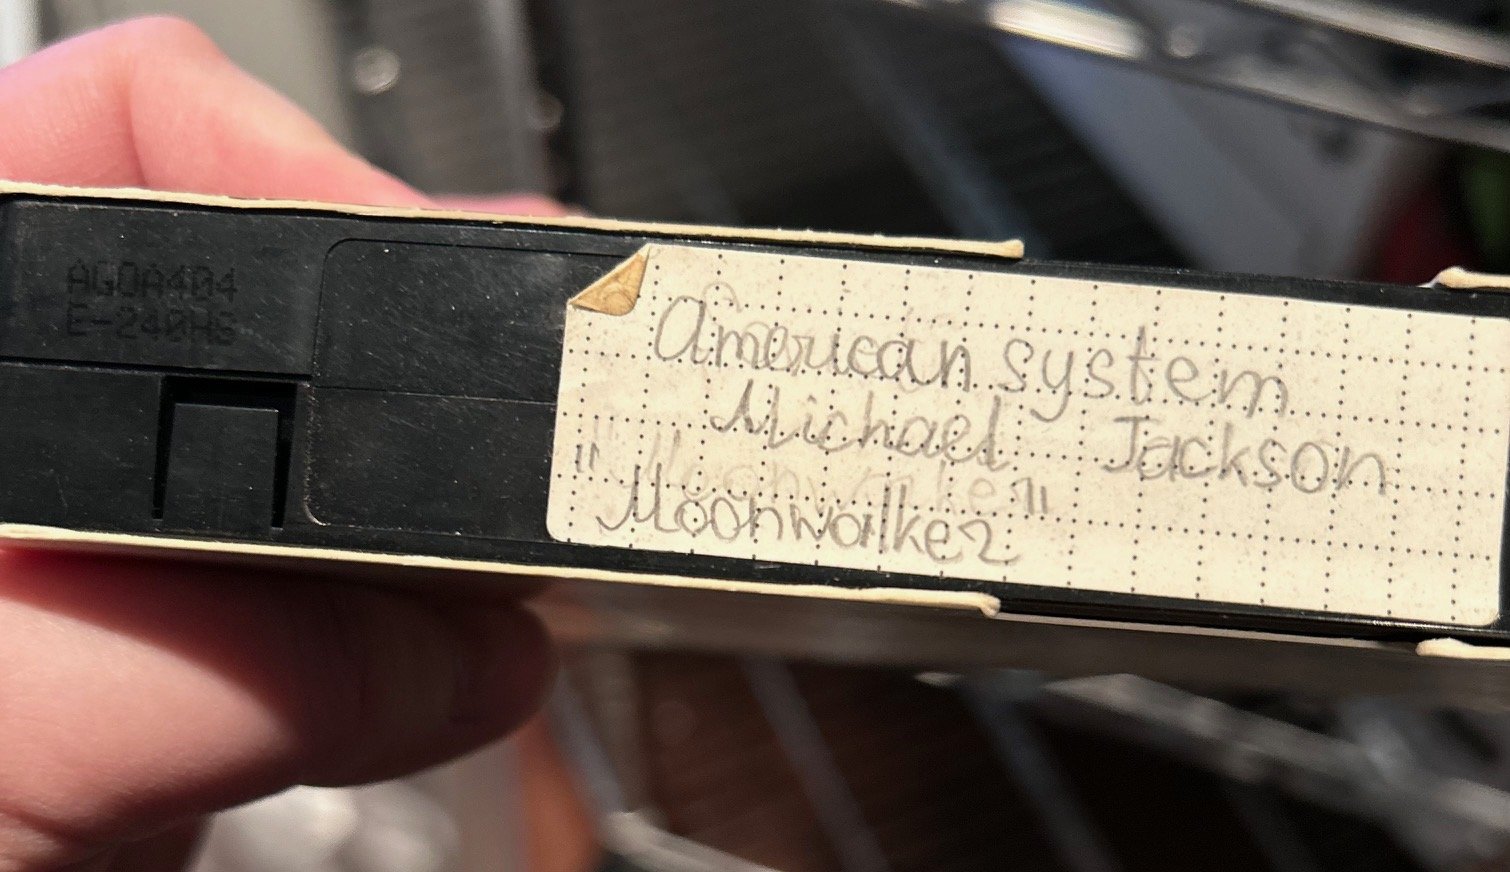 AGOA404
E-240HS
American system
Michael Jackson
"Moonwalker"